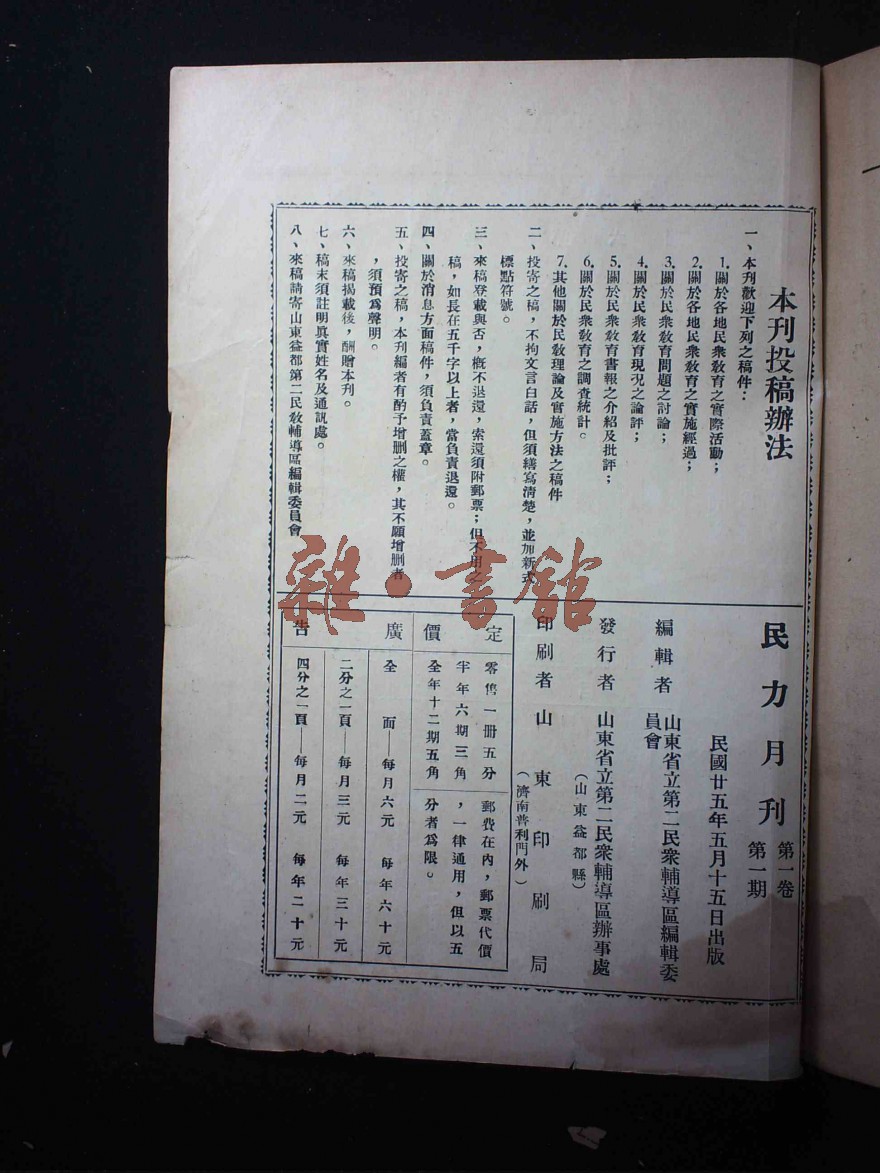 本刊投稿辦法
一、本刊歡迎下列之稿件：
1.關於各地民衆敎育之實際活動；
2.關於各地民衆敎育之實施經過；
3.關於民衆敎育問題之討論；
4.關於民衆敎育現況之論評；
5.關於民衆敎育書報之介紹及批評；
6.關於民衆敎育之調查統計。
7.其他關於民敎理論及實施方法之稿件
二、投寄之稿，不拘文言白話，但須繕寫淸楚，並加新式
標點符號。
三、來稿登載與否，槪不退還，索還須附郵票；但不用之
稿，如長在五千字以上者，當負責退還。
四、關於消息方面稿件，須負責蓋章。
五、投寄之稿，本刊編者有酌予增删之權，其不願增删者
，須預爲聲明。
六、來稿揭載後，酬贈本刊。
七、稿末須註明眞實姓名及通訊處。
八、來稿請寄山東益都第二民敎輔導區編輯委員會
民力月刊
第一卷
第一期
民國廿五年五月十五日出版
編輯者
山東省立第二民衆輔導區編輯委
員會
發行者 山東省立第二民衆輔導區辦事處
（山東益都縣）
印刷者 山東印刷局
（濟南普利門外）
定價
零售一册五分
半年六期三角
全年十二期五角
郵費在內，郵票代價
，一律通用，但以五
分者爲限。
廣告
全面—每月六元 每年六十元
二分之一頁—每月三元 每年三十元
四分之一頁—每月二元 每年二十元
雜·書館